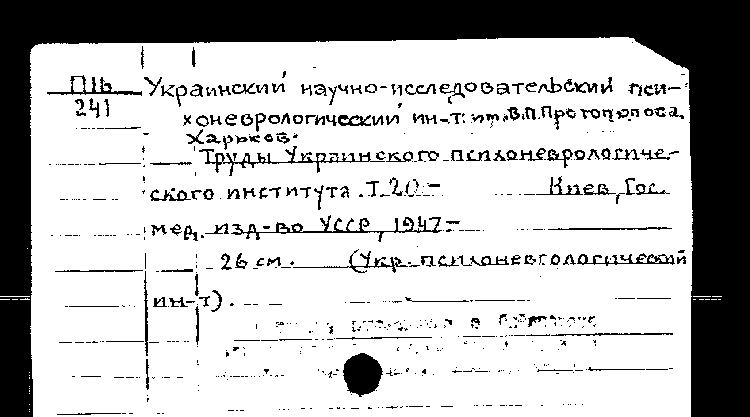 П1Б Украинский научно-исследовательский пси-
241 хоневрологический ин-т. им. В.П. Протопопова.
Харьков.
Труды Украинского психоневрологиче-
ского института. Т. 20 –
Киев, Гос.
мед. изд-во УССР, 1947 –
26 см. (Укр. психоневгологический
ин-т).